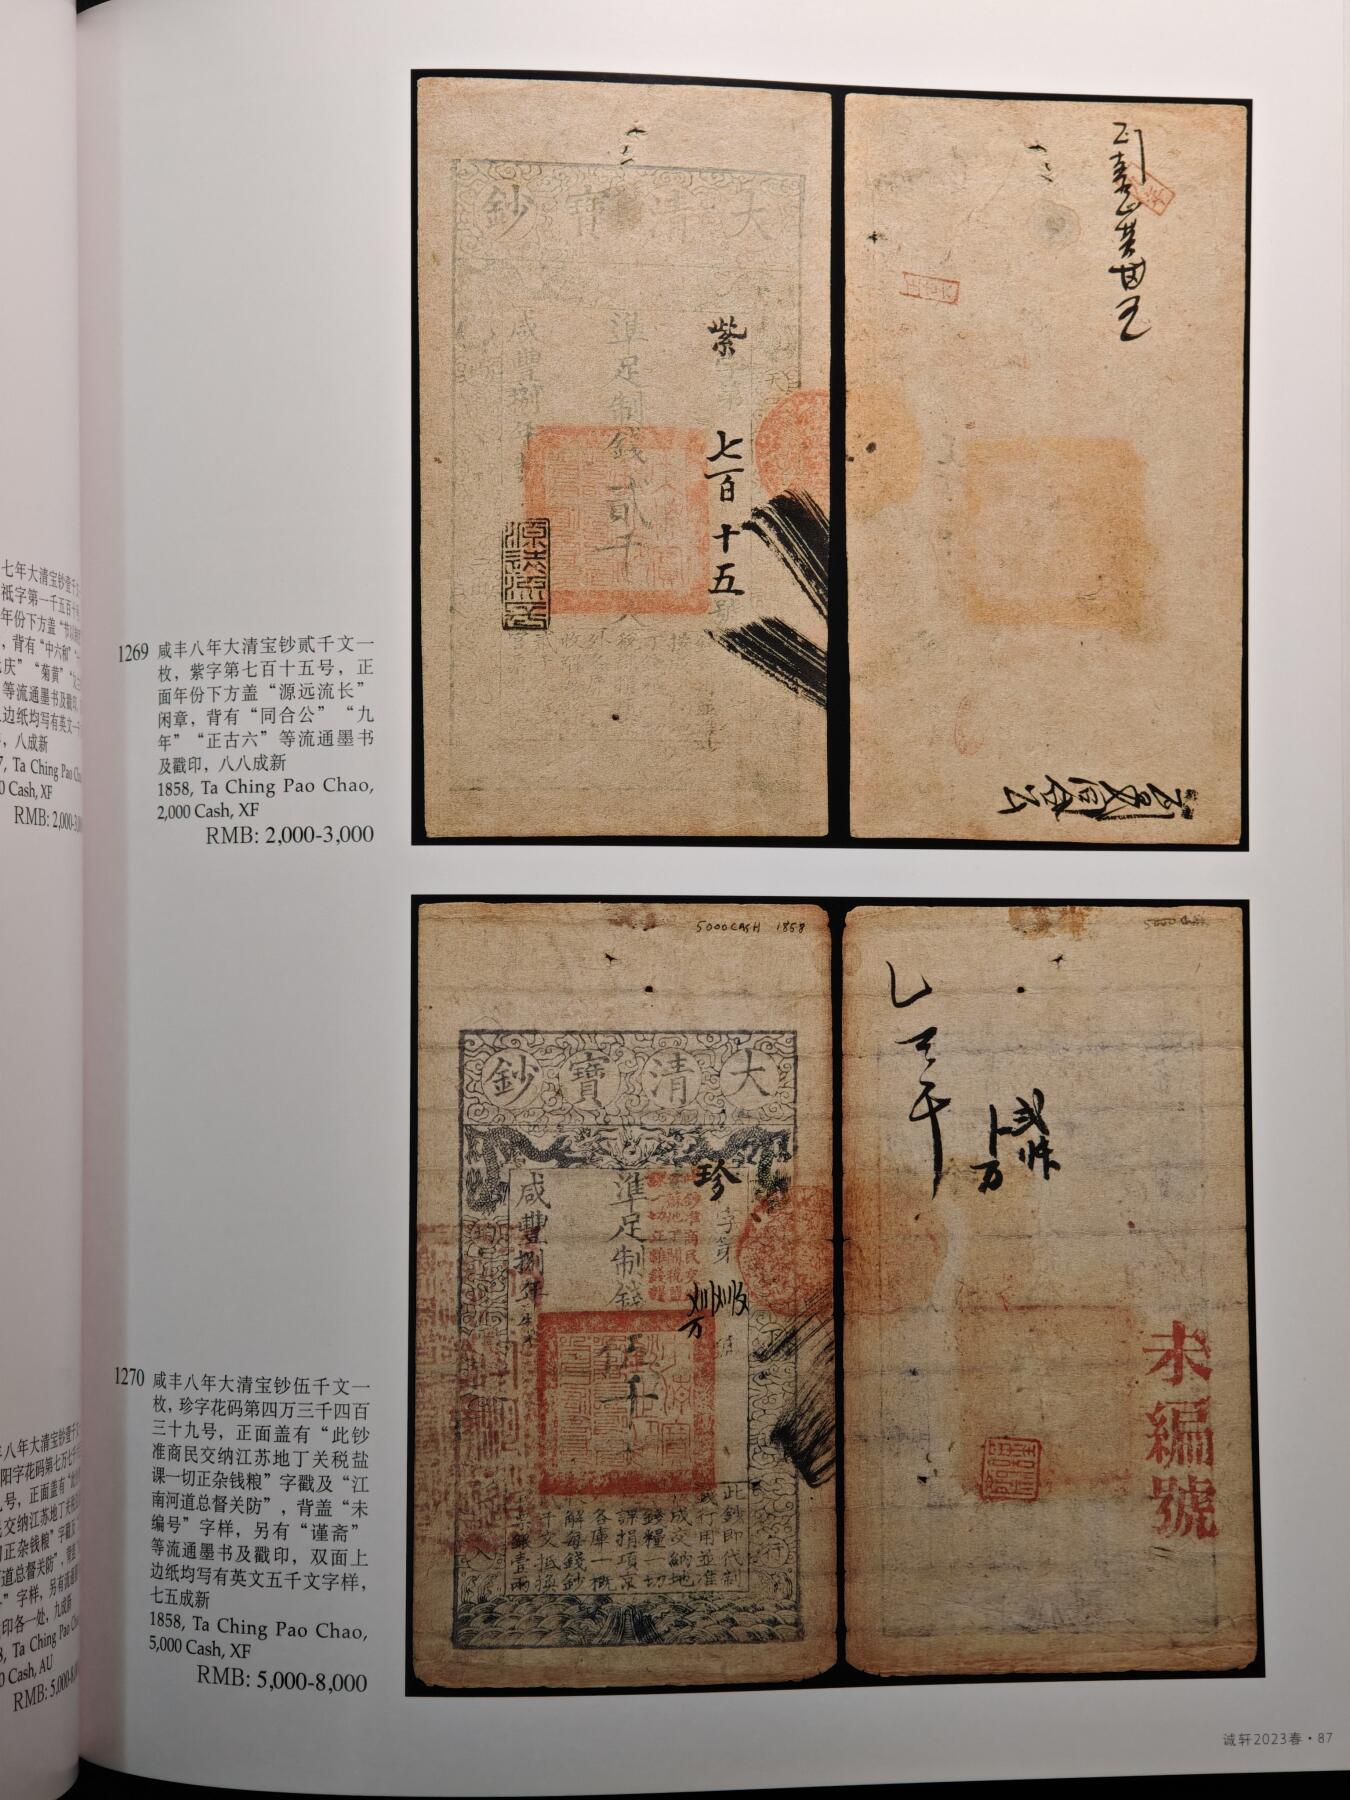 1269 咸丰八年大清宝钞贰千文一
枚，紫字第七百十五号，正
面年份下方盖“源远流长”
闲章，背有“同合公”“九
年”“正古六”等流通墨书
及戳印，八八成新
1858, Ta Ching Pao Chao,
2,000 Cash, XF
RMB: 2,000-3,000
大清寶鈔
紫字第七百十五號
準足制錢貳千文
咸豐捌年
源遠流長
1270 咸丰八年大清宝钞伍千文一
枚，珍字花码第四万三千四百
三十九号，正面盖有“此钞
准商民交纳江苏地丁关税盐
课一切正杂钱粮”字戳及“江
南河道总督关防”，背盖“未
编号”字样，另有“谨斋”
等流通墨书及戳印，双面上
边纸均写有英文五千文字样，
七五成新
1858, Ta Ching Pao Chao,
5,000 Cash, XF
RMB: 5,000-8,000
5000 CASH 1858
大清寶鈔
珍字第
準足制錢伍千文
咸豐捌年
此鈔即代制
錢行用並准
成交納地
錢糧一切
課捐項京
各庫一概
解每錢鈔
千文抵換
銀壹兩
未編號
七年大清宝钞壹千文
祗字第一千五百十
年份下方盖“节
，背有“中六和”
庆”“菊黄”
等流通墨书及戳印
边纸均写有英文一千
，八成新
7, Ta Ching Pao Ch
0 Cash, XF
RMB: 2,000-3,0
八年大清宝钞壹千
阳字花码第七万七千
号，正面盖有“此
交纳江苏地丁关税
正杂钱粮”字戳及
道总督关防”，背盖
”字样，另有流通
印各一处，九成新
8, Ta Ching Pao Ch
0 Cash, AU
RMB: 5,000-8,0
诚轩2023春·87